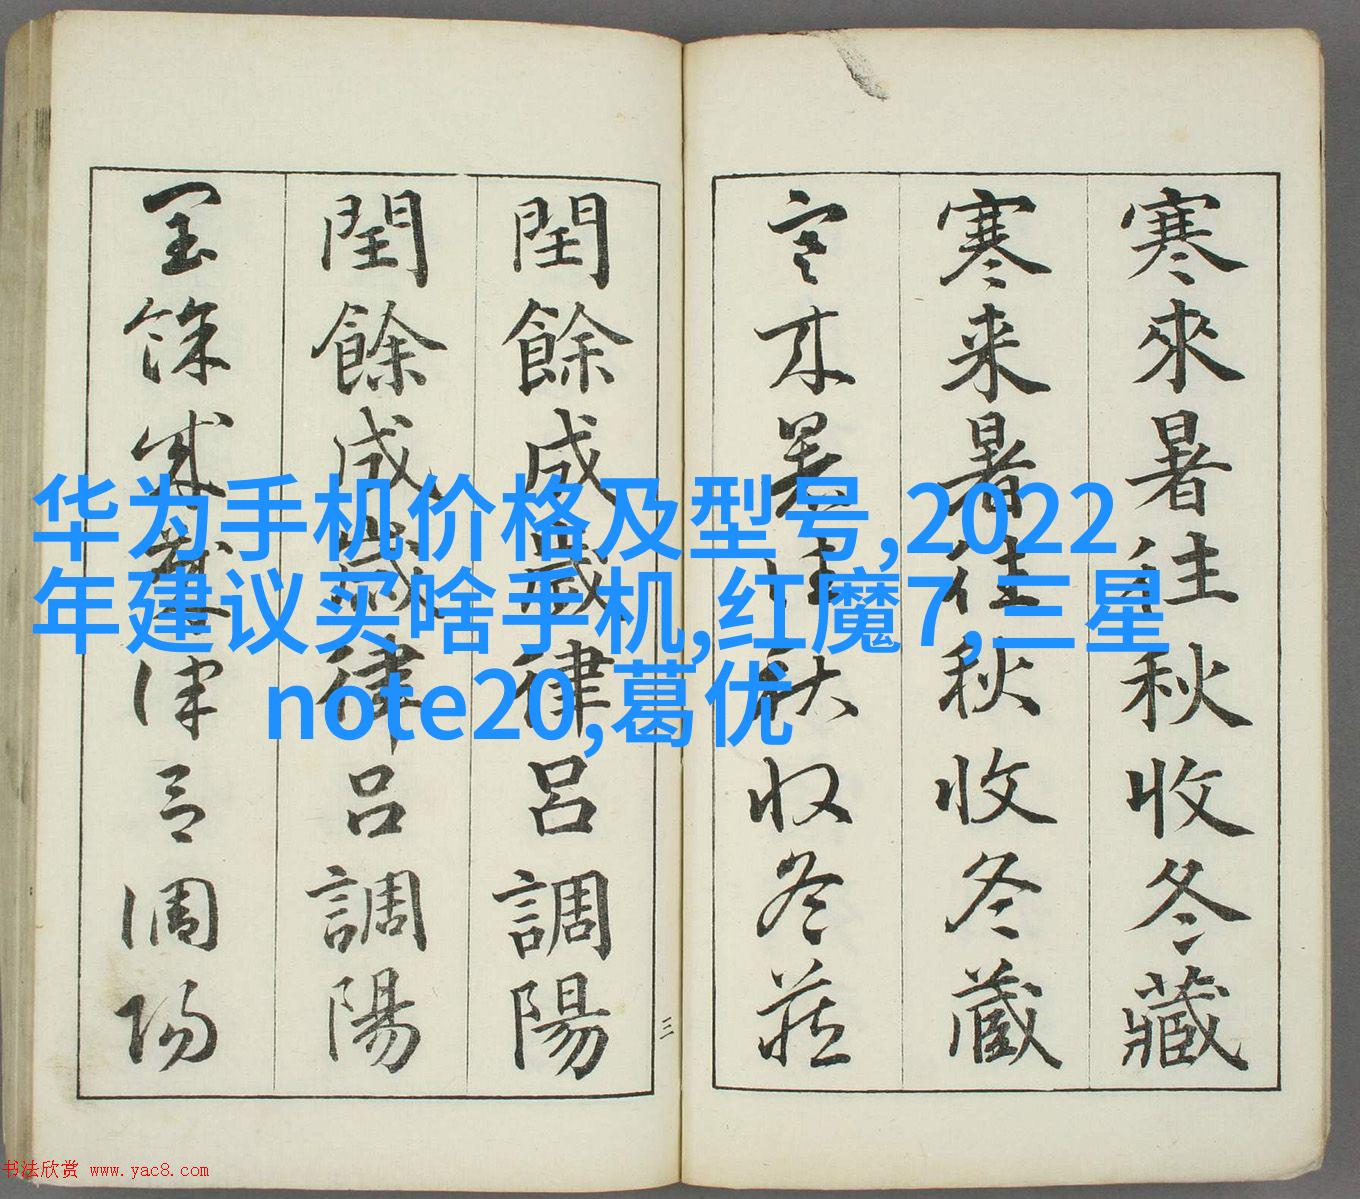 寒來暑往秋收冬藏
寒来暑往秋收冬蔵
寒来暑往秋收冬藏
閏餘成歲律呂調陽
閏餘成歲律呂調陽
閏餘成歲律呂調陽
三
华为手机价格及型号,2022
年建议买啥手机,红魔7,三星
note20,葛优
书法欣赏 www.yac8.com